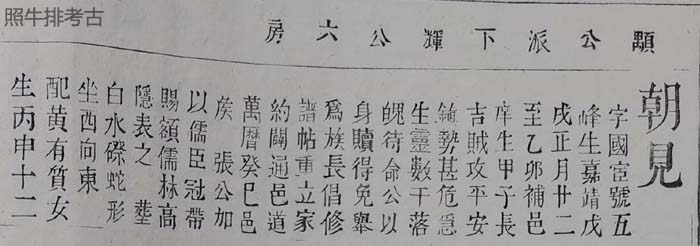 照牛排考古
顒公派下輝公六房
朝見
字國宦號五
峰生嘉靖戊
戌正月廿二
至乙卯補邑
庠生甲子長
吉賊攻平安
鎮勢甚危急
生靈數千落
魄待命公以
身贖得免舉
爲族長倡修
譜帖重立家
約闔通邑道
萬曆癸巳邑
侯 張公加
以儒臣冠帶
賜額儒林高
隱表之 塟
白水磜蛇形
坐西向東
配黃有質女
生丙申十二